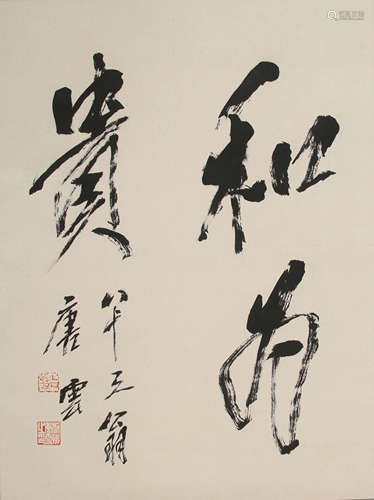 和為
貴
八十三翁
唐雲